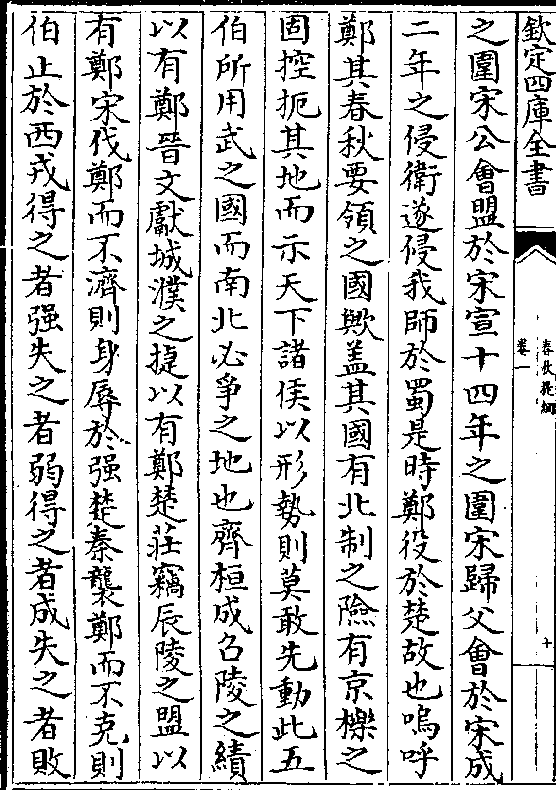 欽定四庫全書
春秋
卷一
十
之圍宋公會盟於宋宣十四年之圍宋歸父會於宋成
二年之侵衛遂侵我師於蜀是時鄭役於楚故也嗚呼
鄭其春秋要領之國歟盖其國有北制之險有京櫟之
固控扼其地而示天下諸侯以形勢則莫敢先動此五
伯所用武之國而南北必爭之地也齊桓成召陵之績
以有鄭晉文獻城濮之捷以有鄭楚莊竊辰陵之盟以
有鄭宋伐鄭而不濟則身辱於强楚秦襲鄭而不克則
伯止於西戎得之者强失之者弱得之者成失之者敗